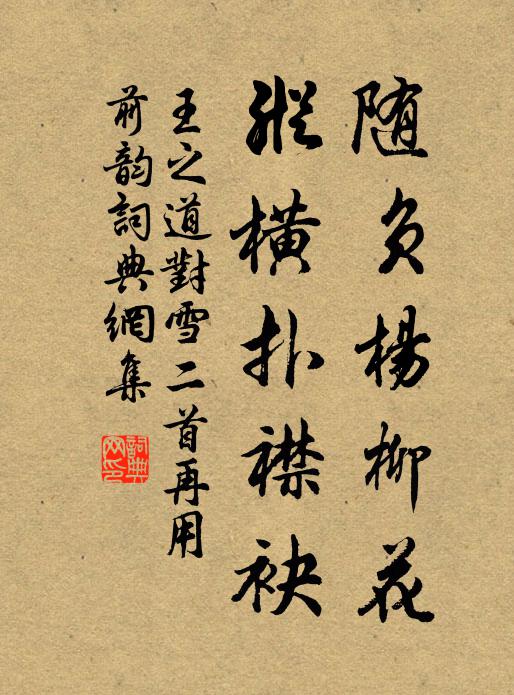 随负杨柳花
縱橫扑襟袂
王之道對雪二首再用
前韵詞典網集
詞典网印